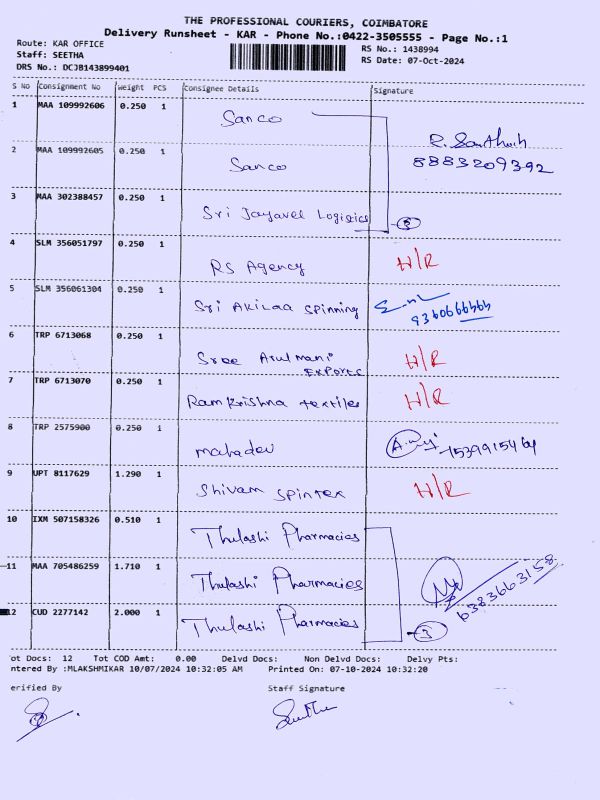 THE PROFESSIONAL COURIERS, COIMBATORE
Delivery Runsheet - KAR - Phone No.:0422-3505555 - Page No.:1
Route: KAR OFFICE
Staff: SEETHA
DRS No.: DCJB143899401
RS No.: 1438994
RS Date: 07-Oct-2024
S No Consignment No Weight PCS Consignee Details Signature
1 MAA 109992606 0.250 1 Sanco
2 MAA 109992605 0.250 1 Sanco
8883209392
3 MAA 302388457 0.250 1 Sri Jayavel Logistics 3
4 SLM 356051797 0.250 1 RS Agency H/R
5 SLM 356061304 0.250 1 Sri Akilaa Spinning
6 TRP 6713068 0.250 1 Sree Arulmani Exports H/R
7 TRP 6713070 0.250 1 Ramkrishna textiles H/R
8 TRP 2575900 0.250 1 mahadev
9 UPT 8117629 1.290 1 Shivam Spintex H/R
10 IXM 507158326 0.510 1 Thulashi Pharmacies
11 MAA 705486259 1.710 1 Thulashi Pharmacies
6383663158
12 CUD 2277142 2.000 1 Thulashi Pharmacies 3
ot Docs: 12 Tot COD Amt: 0.00 Delvd Docs: Non Delvd Docs: Delvy Pts:
ntered By :MLAKSHMIKAR 10/07/2024 10:32:05 AM Printed On: 07-10-2024 10:32:20
erified By Staff Signature
Seetha